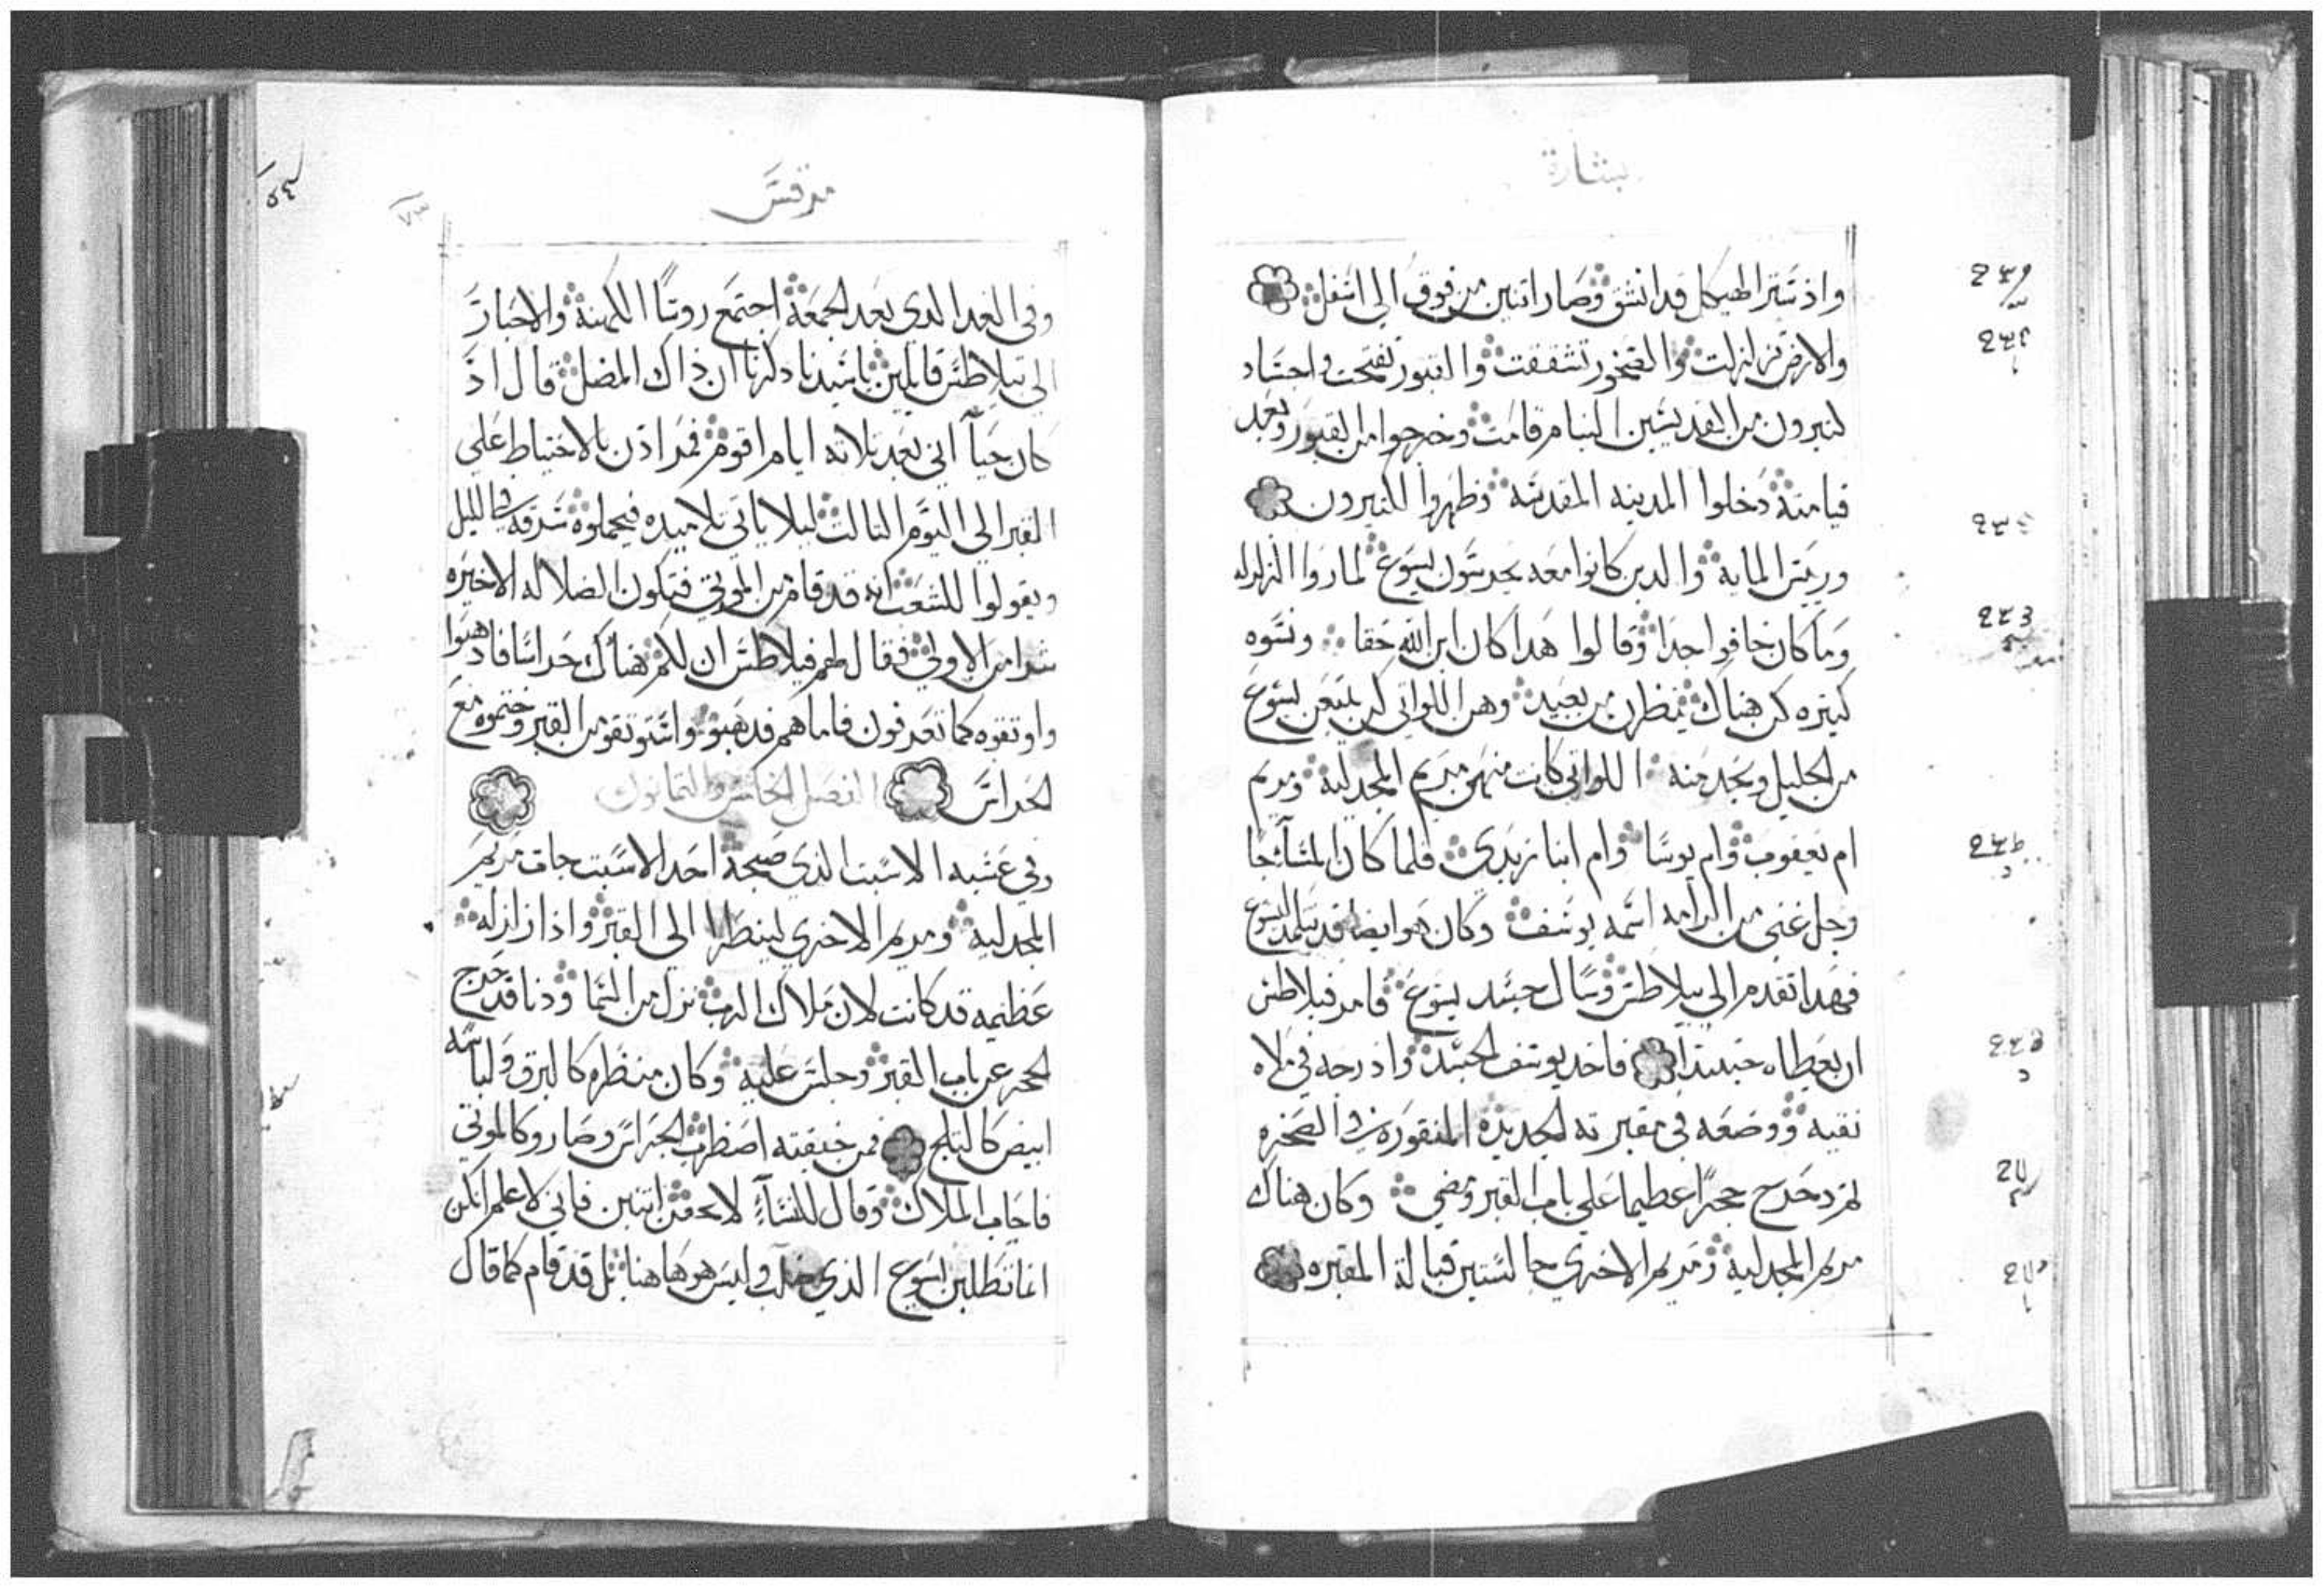 بشارة
واذ ستر الهيكل قد انشق وصار اتنين من فوق الي اسفل
والارض تزلزلت والصخور تشققت والقبور تفتحت واجساد
كتيرون من القديسين النيام قامت وخرجوا من القبور وبعد
قيامته دخلوا المدينه المقدسه وظهروا لكتيرون
وريس المايه والدين كانوا معه يحرسون يسوع لما روا الزلزله
وما كان خافوا جدا وقالوا هدا كان ابن الله حقا ونسوه
كتيره كن هناك ينظرن من بعيد وهن اللواتي كن يتبعن يسوع
من الجليل ويخدمنه اللواتي كانت منهن مريم المجدليه ومريم
ام يعقوب وام يوسا وام ابنا زبدي فلما كان المسآ جا
رجل غني من الرامه اسمه يوسف وكان هو ايضا قد تتلمد ليسوع
فهدا تقدم الي بيلاطس وسال جسد يسوع فامر فيلاطس
ان يعطاه جسدا فاخد يوسف الجسد وادرجه في ملاه
نقيه ووضعه في مقبرته الجديدة المنقورة في الصخره
تم دحرج حجرًا عظيما علي باب القبر ومضي وكان هناك
مريم المجدلية ومريم الاخري جالستين قبالة المقبره
مرقس
وفي الغد الدي بعد الجمعة اجتمع روسًا الكهنة والاحبار
الي بيلاطس قايلين ياسيدنا دكرنا ان ذاك المضل قال اذ
كان حيآ اني بعد تلاته ايام اقوم فمر اذن بالاحتياط علي
القبر الي اليوم التالت ليلا ياتي تلاميده فيحملوه سرقه في الليل
ويقولوا للشعب انه قد قام من الموتي فتكون الضلاله الاخيره
شرا من الاولي فقال لهم فيلاطس ان لكم هناك حراسا فادهبوا
واوتقوه كما تعرفون فاما هم فدهبو واستوتقو من القبر وختموه مع
الحراس الفصل الخامس والتمانون
وفي عشيه الاسبت الذي صبحة احد الاسبت جات مريم
المجدليه ومريم الاخري لينظرا الي القبر واذا زلزله
عظيمه قد كانت لان ملاك الرب نزل من السما ودنا قد حرج
الحجر عن باب القبر وجلس عليه وكان منظره كالبرق ولباسه
ابيض كالتلج فمن خيفته اضطرب الحراس وصارو كالموتي
فاجاب الملاك وقال للنسآء لا تخفن انتين فاني لاعلم انكن
انما تطلبن يسوع الذي صلب وليس هو هاهنا بل قد قام كما قال